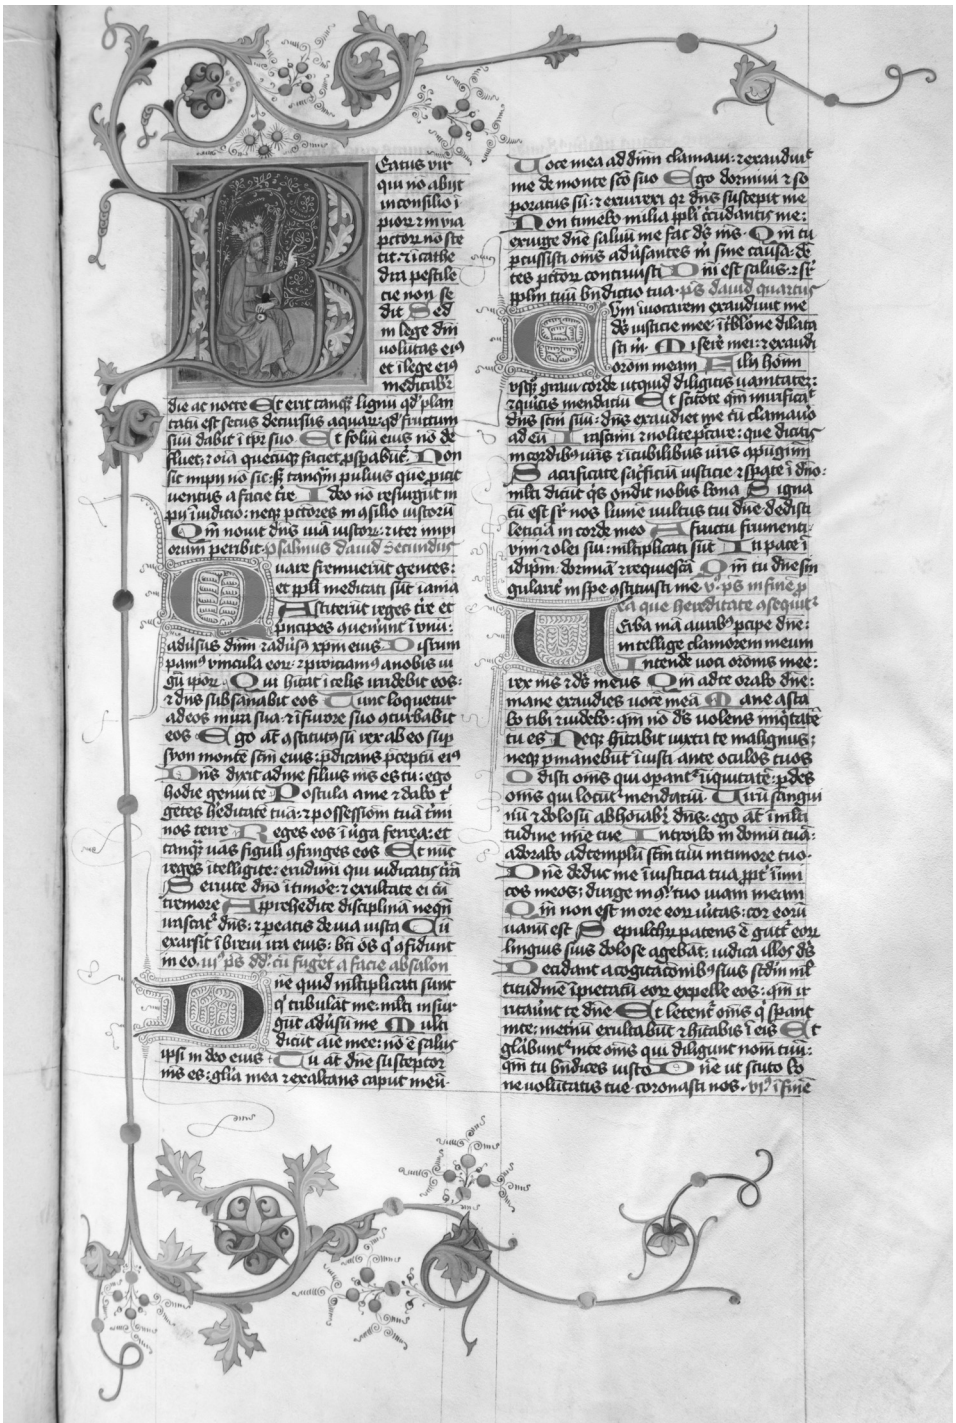 Eatus vir
qui nō abijt
in consilio ī
pioꝝ ⁊ in via
pctoꝝ nō ste
tit · ⁊ ī cathe
dra pestile
cie non se
dit Sed
in lege dn̄i
volūtas eiꝰ
et ī lege eiꝰ
meditabr̄
die ac nocte Et erit tanqꝫ lignū qd̓ plan
tatū est secus decursus aquaꝝ · qd̓ fructum
suū dabit ī tp̄r suo · Et foliū eius nō de
fluet · ⁊ oīa quecūqꝫ faciet ꝓspabūt̄ · Non
sic impij nō sic · sꝫ tanqm̄ puluis que ꝓicit
ventus a facie tr̄e Ideo nō resugūt im
pij ī iudicio : neqꝫ pctores in ꝯsilio iustorū
Qm̄ nouit dn̄s viā iustoꝝ · ⁊ iter impi
orum peribit · psalmus dauid Secundus
uare fremuerūt gentes :
et ppl̓i meditati sūt inania
Astiterūt reges tr̄e et
pn̓cipes ꝯuenūnt ī vnū :
adūsus dn̄m ⁊ adūsꝰ xp̄m eius Disrum
pamꝰ vincula eoꝝ · ⁊ proiciamꝰ a nobis iu
gū ip̄oꝝ Qui hītat ī celis irridebit eos :
⁊ dn̄s subsānabit eos Tunc loquetur
ad eos in ira sua · ⁊ ī furore suo ꝯturbabit
eos Ego āt ꝯstitutꝰ sū rex ab eo sup̄
syon montē scm̄ eius : pd̄icans p̄ceptū eiꝰ
Dn̄s dyxit ad me filius m̄s es tu : ego
hodie genui te Postula a me ⁊ dabo t̓
getes hēditatē tuā : ⁊ possessiom̄ tuā t̓mi
nos terre Reges eos ī uirga ferrea : et
tanqꝫ vas figuli ꝯfringes eos Et nūc
reges ītelligite : erudimī qui iudicatis tr̄ā
Seruite dno ī timore · ⁊ exultate ei cū
tremore Apprehēdite disciplinā neqn̄
irascat̄ dn̄s : ⁊ peatis de via iusta Cū
exarsit ī breui ira eius : bt̄i oēs q̓ ꝯfidunt
in eo · iijꝰ ps̄ dd̓ · cū fuget a facie absalon
n̄e quid ml̓tiplicati sunt
q̓ tribulāt me : ml̓ti insur
gūt adūsū me Multi
dicūt aīe mee : nō ē salus
ipsi in deo eius Tu āt dn̄e susceptor
m̄s es : gl̓ia mea ⁊ exaltans caput meū ·
Uoce mea ad dn̄m clamaui : ⁊ exaudiuit
me de monte scō suo Ego dormiui ⁊ so
poratus sū : ⁊ exurrexi qr̄ dn̄s suscepit me
Non timebo milia ppl̓i c̓cūdantis me :
exurge dn̄e saluū me fac ds̄ m̄s · Qm̄ tu
p̄cussisti om̄s adūsantes m̓ sine causa · dē
tes pctoꝝ contriuisti Dn̄i est salus · ⁊ sr̄
pplm̄ tuū bn̄dictio tua · ps̄ dauid quartus
Um īuocarem exaudiuit me
ds̄ iusticie mee : ī tb̓lōne dilata
sti m̓ · Misere mei : ⁊ exaudi
orōm meam Filij hōm̄
vsqꝫ graui corde utquid diligitis vanitatez :
⁊ queritis mendatiū Et scitote qm̄ mirificaῑt
dn̄s scm̄ suū : dn̄s exaudiet me cū clamauo
ad eū Irascimī ⁊ nolite pctāre : que dicitis
in cordibꝰ vr̄is ⁊ ī cubilibus vr̄is ꝯpūgim̄
Sacrificate sacficiū iusticie ⁊ spate ī dn̄o :
ml̓ti dicūt q̓s ondit nobis bona Signa
tū est sr̄ nos lumē vultus tui dn̄e · dedisti
leticiā in corde meo A fructu frumenti ·
vini ⁊ olei sui : ml̓tiplicati sūt In pace ī
idip̄m : dormiā ⁊ requiescā Qm̄ tu dn̄e sin
gularit̓ in spe ꝯstituisti me · vꝰ · ps̄ in finē p
ea que hereditatē ꝯsequit̄
Erba mā auribꝰ pcipe dn̄e :
intellige clamorem meum
Intende uoci orōnis mee :
rex m̄s ⁊ ds̄ meus Qm̄ ad te orabo dn̄e :
mane exaudies uocē meā Mane asta
bo tibi ⁊ uidebo : qm̄ nō ds̄ volens iniq̓tatē
tu es Neqꝫ h̄itabit iuxta te malignus :
neqꝫ pmanebūt īiusti ante oculos tuos
Odisti om̄s qui opant̄ īiquitatē · pdes
om̄s qui locūt̄ mendatiū · Uirū sangui
nū ⁊ dolosū abhoīabr̄ dn̄s : ego āt ī ml̓ti
tudine mīe tue Introibo in domū tuā :
adorabo ad templū scm̄ tuū in timore tuo ·
Dn̄e deduc me ī iusticia tua · ppt̓ īimi
cos meos : dirige in ꝯsꝰ tuo viam meam
Qm̄ non est in ore eoꝝ ūitas : cor eorū
vanū est Sepulchꝝ patens ē gutt̓ eoꝝ
linguis suis dolose agebāt : iudica illos ds̄
Decidant a cogitacōnibꝰ suis · scd̄m ml̓
titudinē īpietatū eoꝝ expelle eos : qm̄ ir
ritauūt te dn̄e Et letent̄ om̄s q̓ spant
in te : in et̄nū exultabūt ⁊ h̄itabis ī eis Et
gl̓abunt̄ in te om̄s qui diligunt nom̄ tuū :
qm̄ tu bn̄dices iusto Dn̄e ut scuto bo
ne volūtatis tue · coronasti nos · vjꝰ ī finē